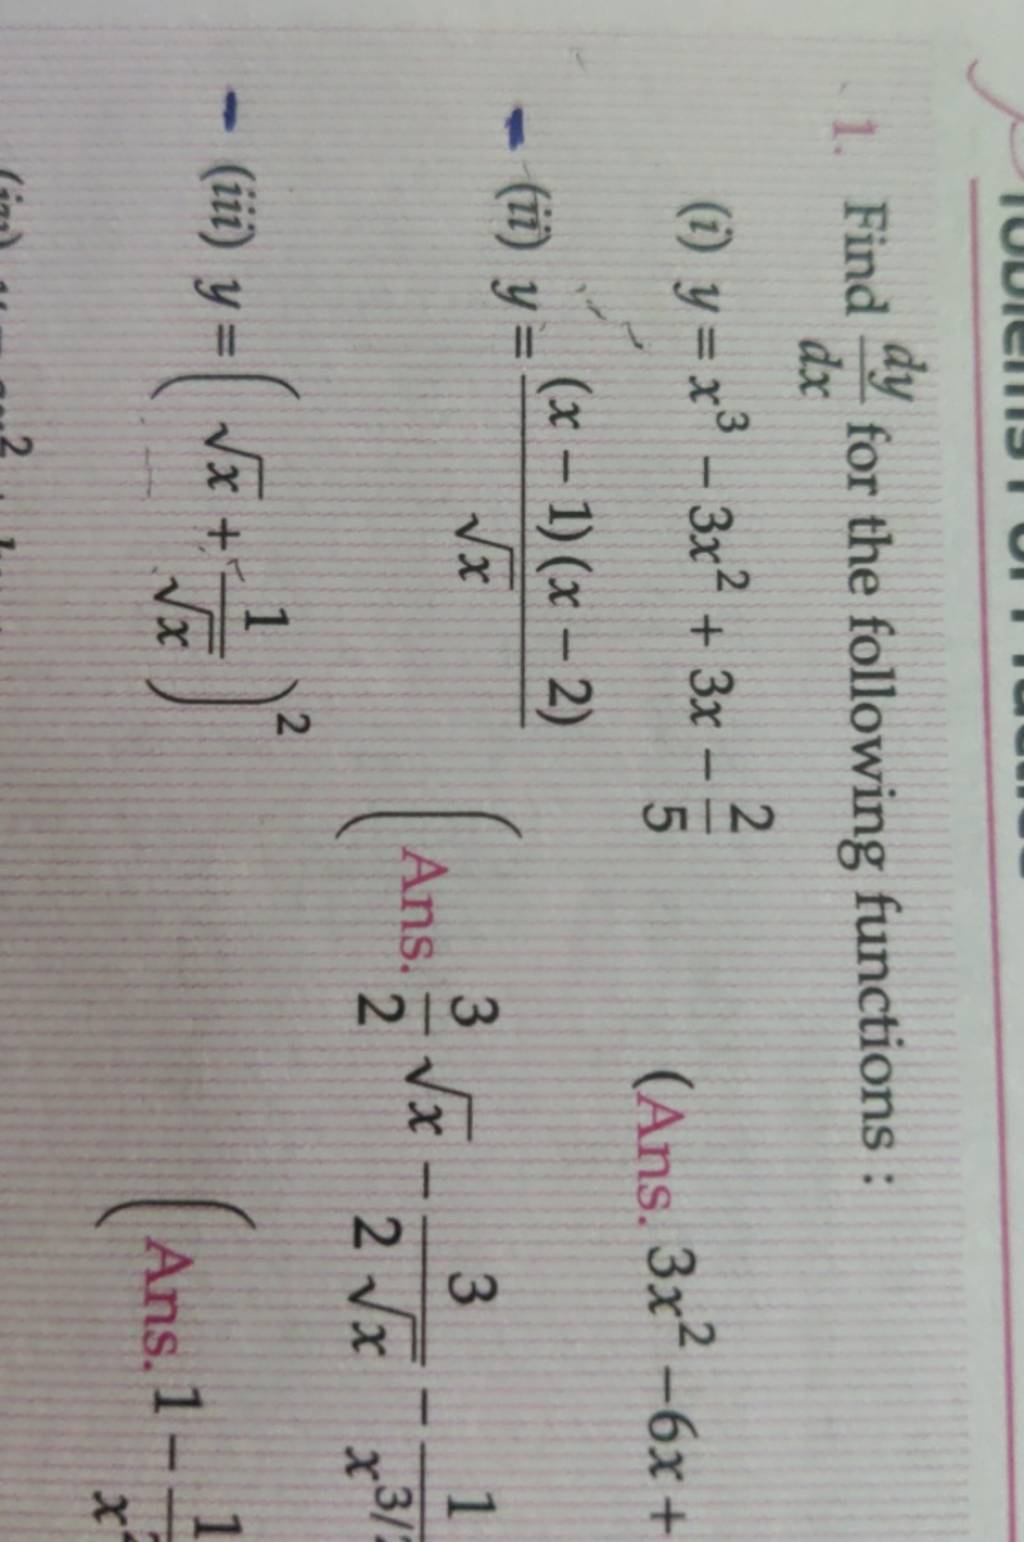 1. Find dy/dx for the following functions :
(i) y = x³ − 3x² + 3x − 2/5
(Ans. 3x² −6x +
(ii) y = (x − 1)(x − 2)/√x
(Ans. 3/2 √x − 3/(2√x) − 1/x^3/
(iii) y = (√x + 1/√x)²
(Ans. 1 − 1/x